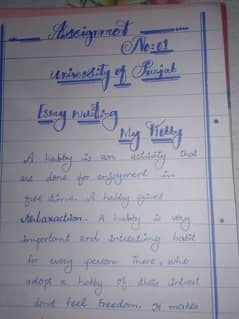 Assignment
No:01
University of Punjab
Essay writing
My Hobby
A hobby is an activity that
are done for enjoyment in
free time. A hobby gives
relaxaction. A hobby is very
important and intersting habit
for every person There, who
adopt a hobby of their intrest
dont feel freedom. It makes